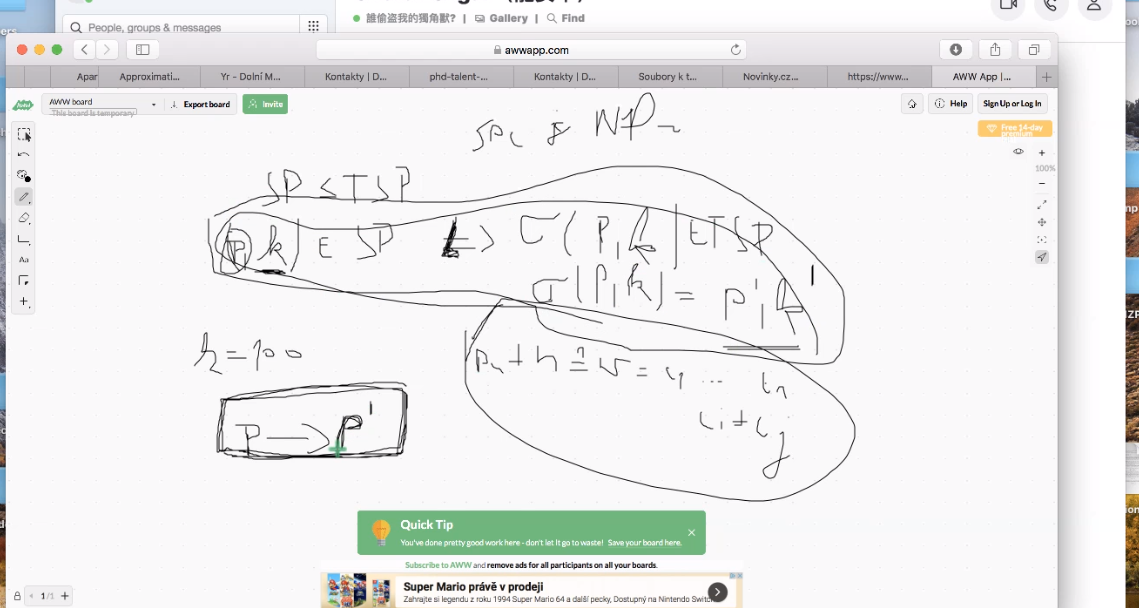 誰偷盜我的獨角獸? | Gallery | Find
People, groups & messages
awwapp.com
Apar
Approximati...
Yr - Dolní M...
Kontakty | D...
phd-talent-...
Kontakt | D...
Soubory k t...
Novinky.cz...
https://www...
AWW App |...
AWW board
This board is temporary
Export board
Invite
Help
Sign Up or Log In
Free 14-day premium
100%
Aa
SP ≤ TSP
P, k) ∈ SP ⇔ σ(P, k) ∈ TSP
σ(P, k) = P', k'
k = 100
P → P'
Quick Tip
You've done pretty good work here - don't let it go to waste! Save your board here.
Subscribe to AWW and remove ads for all participants on all your boards.
Super Mario právě v prodeji
Zahrajte si legendu z roku 1994 Super Mario 64 a další pecky, Dostupný na Nintendo Switch
1/1